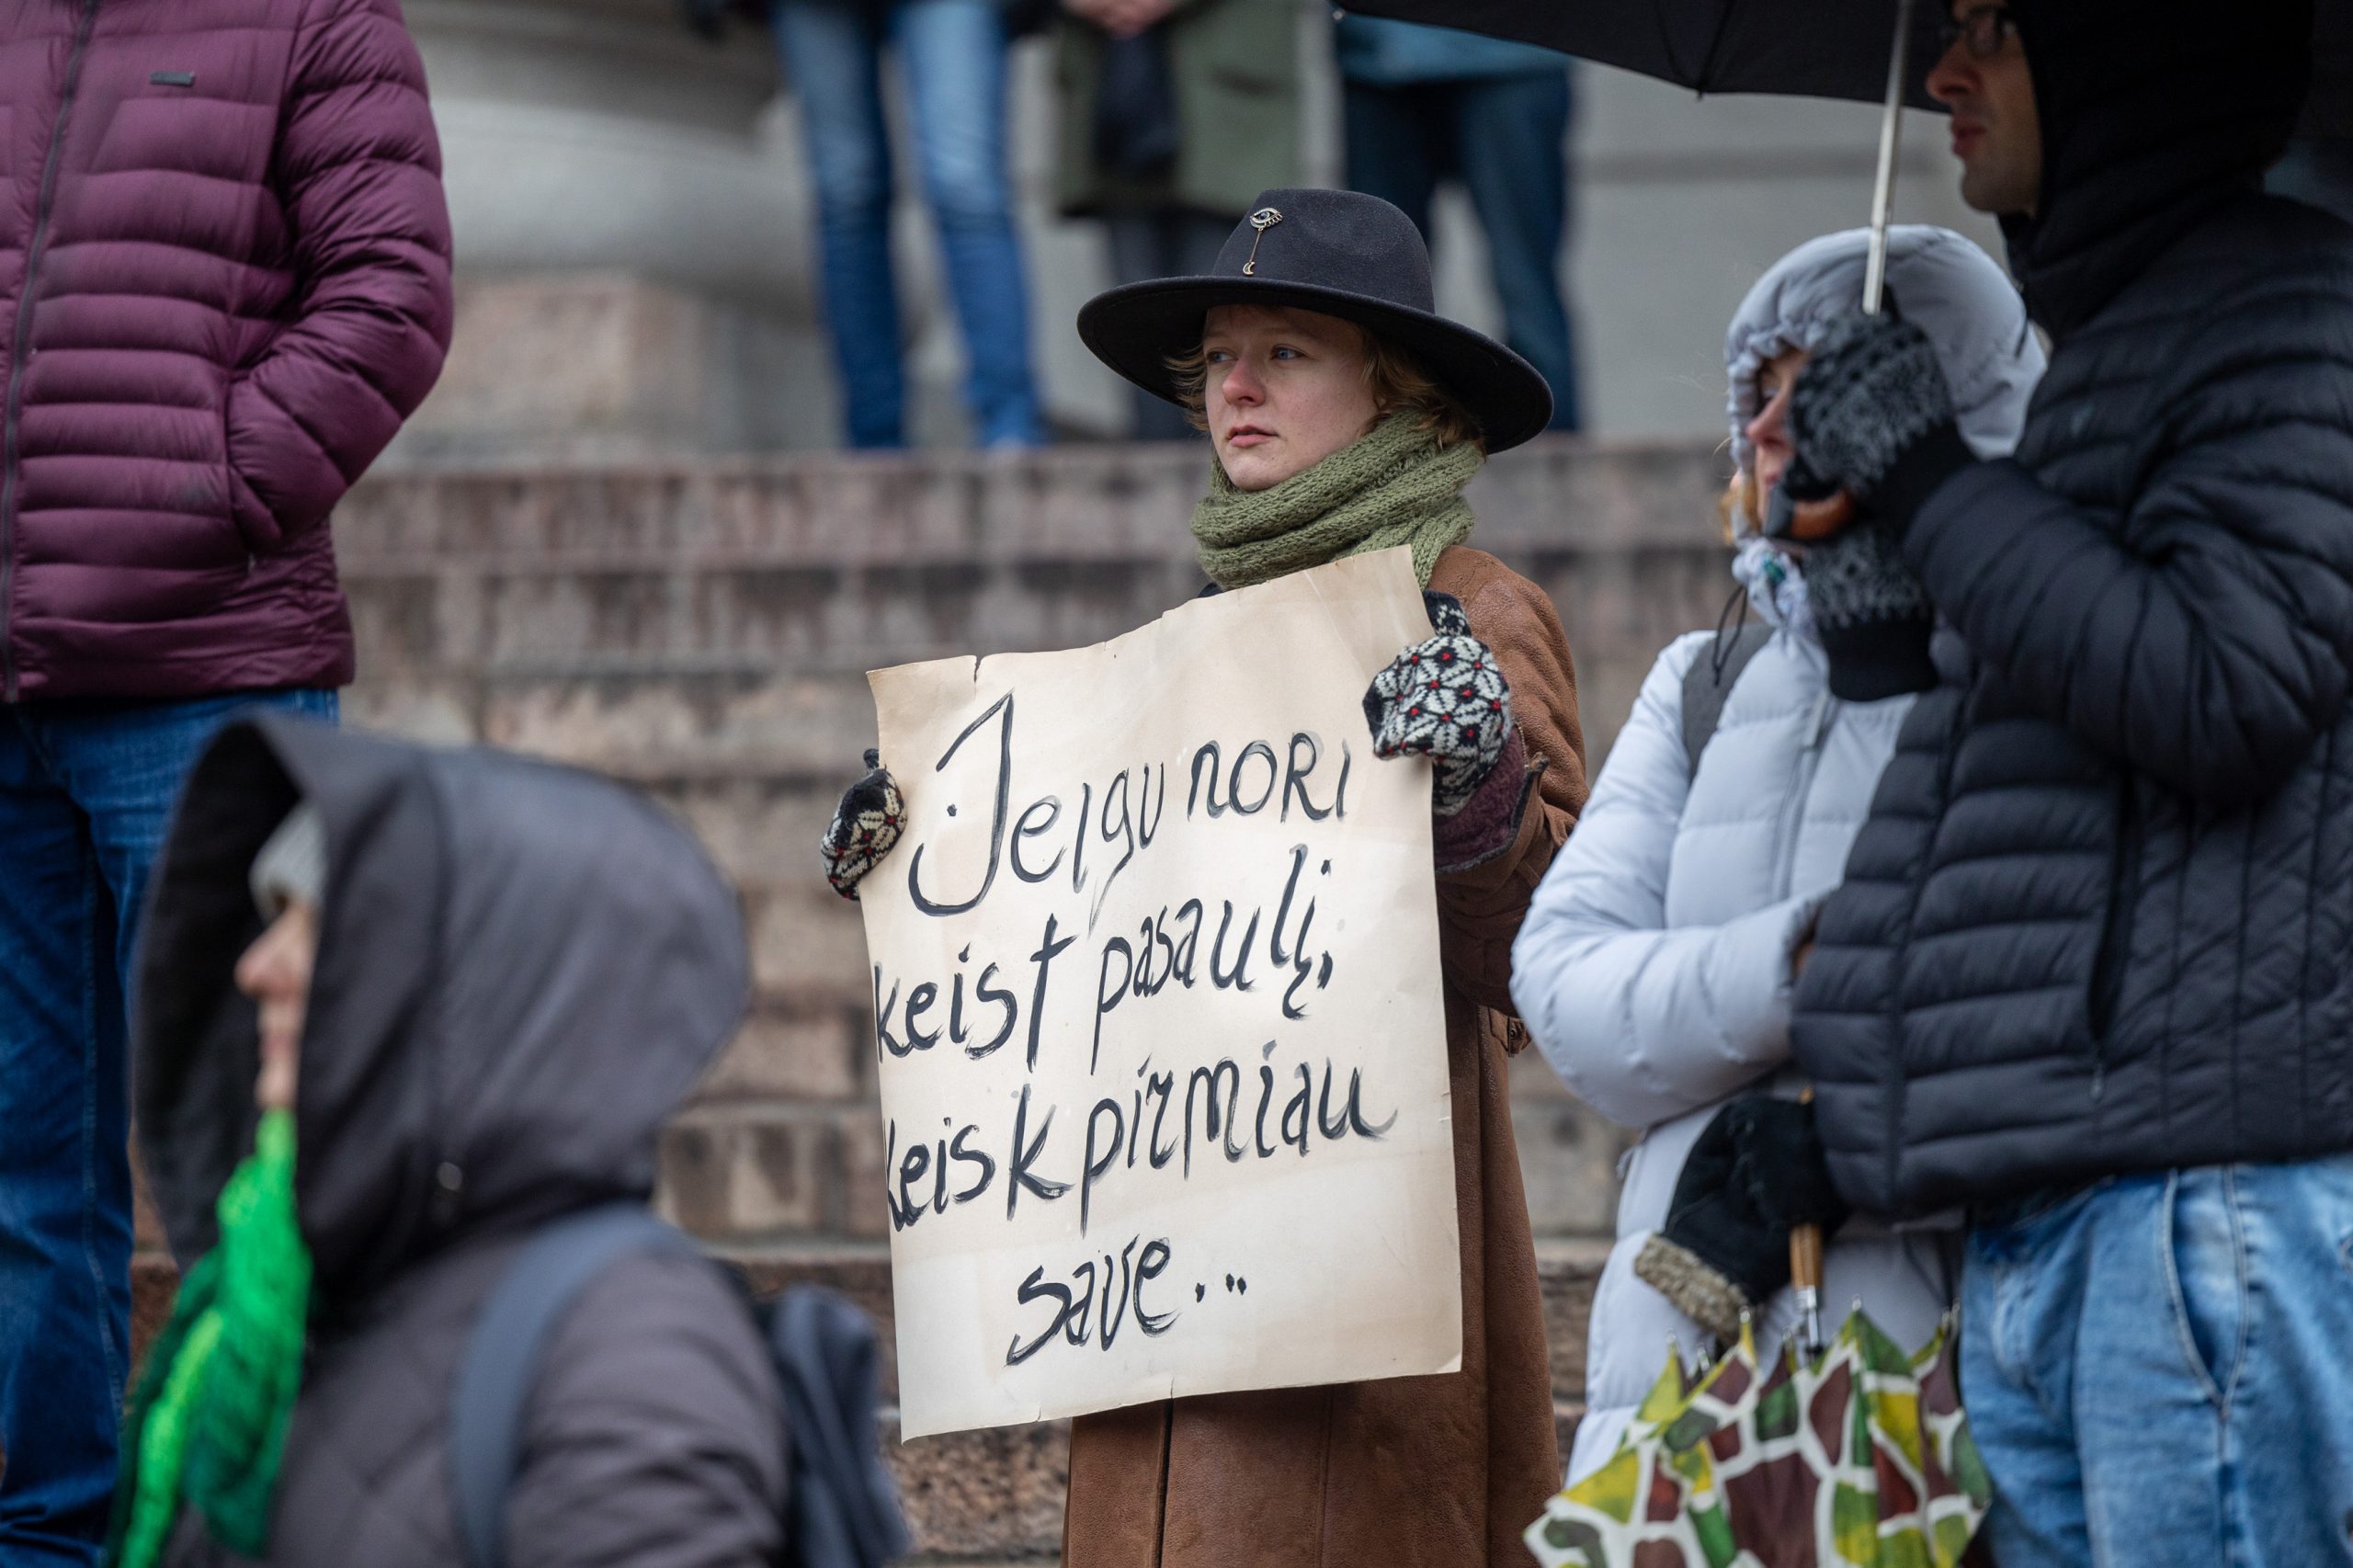 Jeigu nori
keist pasaulį,
keisk pirmiau
save...